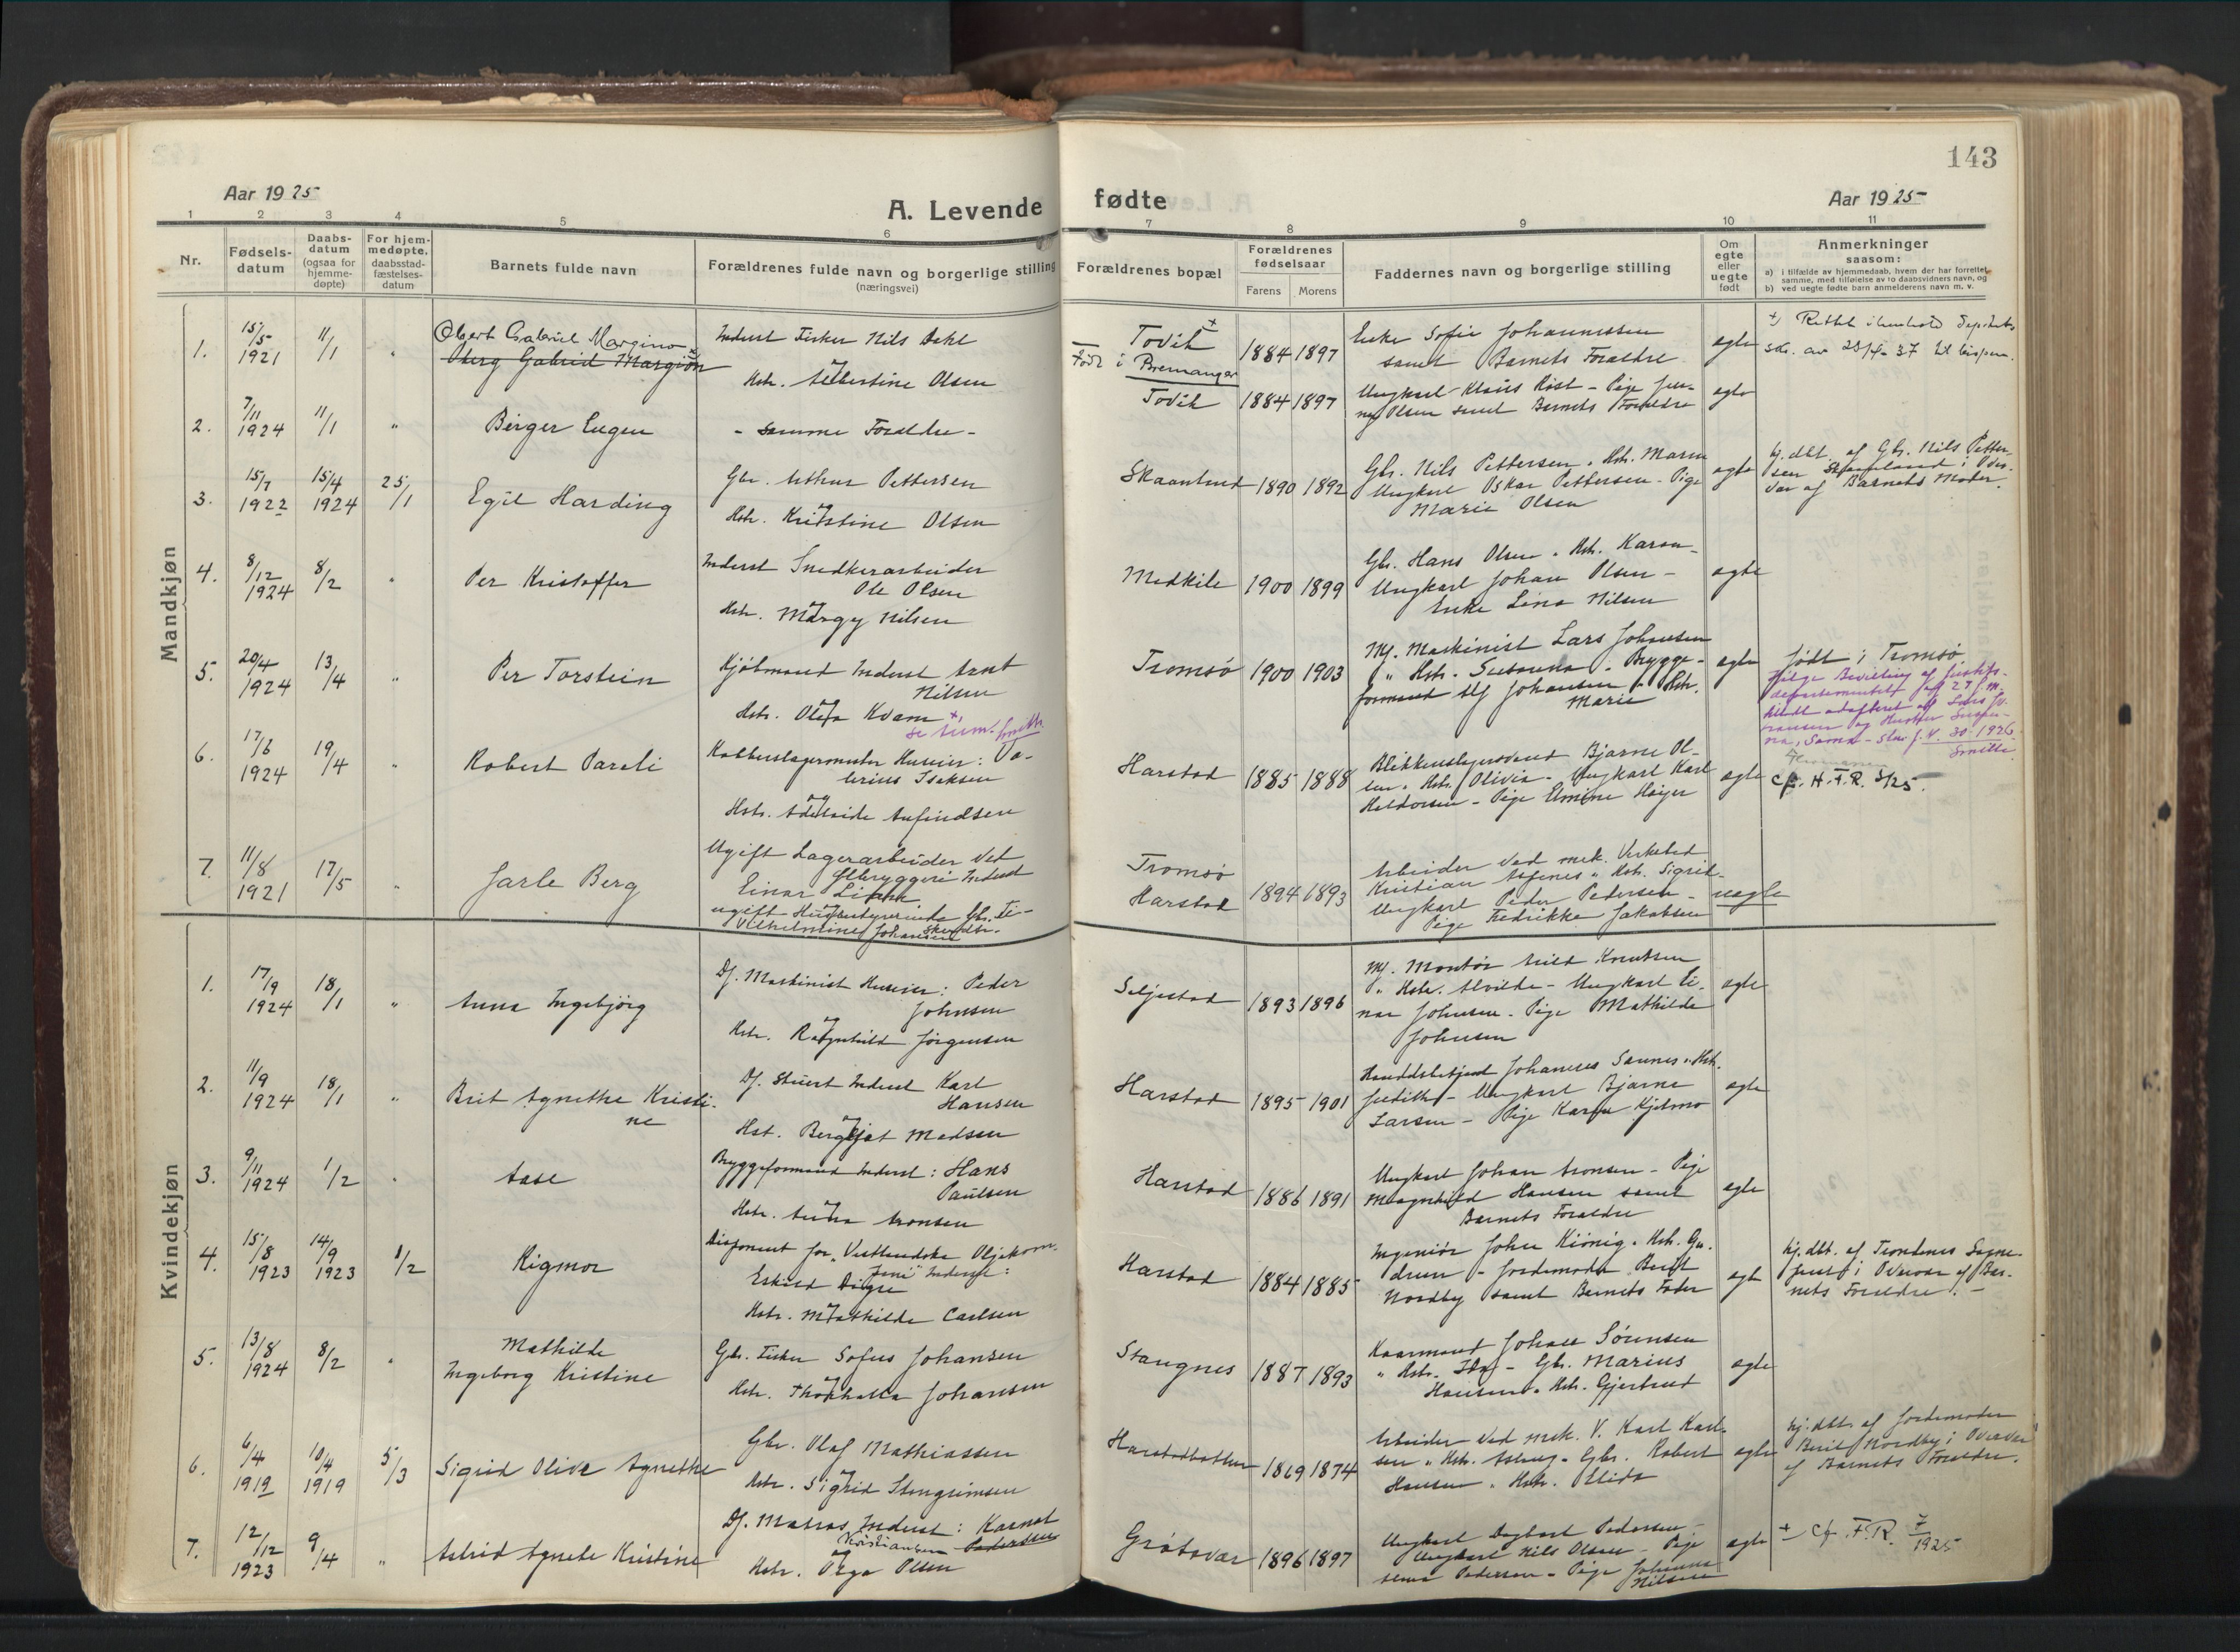 143
Aar 1925
A. Levende
fødte
Aar 1925
1 2 3 4 5 6 7 8 9 10 11
Nr.
Fødsels-
datum
Daabs-
datum
(ogsaa for
hjemme-
døpte)
For hjem-
medøpte.
daabsstad-
fæstelses-
datum
Barnets fulde navn
Forældrenes fulde navn og borgerlige stilling
(næringsvei)
Forældrenes bopæl
Forældrenes
fødselsaar
Farens Morens
Faddernes navn og borgerlige stilling
Om
egte
eller
uegte
født
Anmerkninger
saasom:
a) i tilfælde av hjemmedaab, hvem der har forrettet
samme, med tilføielse av to daabsvidners navn, og
b) ved uegte fødte barn anmelderens navn m. v.
Mandkjøn
1. 15/5 1921 11/1 "
Obert Gabriel Margino
Oberg Gabriel Margion
Inderst Fisker Nils Dahl
og
Hstr. Albertine Olsen
Tovik +
Født i Bremanger
1884 1897
Enke Sofie Johannessen
samt Barnets Forældre
egte
+) Rettet i henhold Depchets
skr. av 23/4-37 til bispen.
2. 7/11 1924 11/1 "
Birger Eugen
- samme Forældre -
Tovik
1884 1897
Ungkarl Klaus Røst - Pige Jen-
ny Olsen samt Barnets Forældre
egte
3. 15/7 1922 15/4 1924 25/1
Egil Harding
Gbr. Arthur Pettersen
og
Hstr. Kristine Olsen
Skaanland
1890 1892
Gbr. Nils Pettersen " Hstr. Maren
Ungkarl Oskar Pettersen - Pige
Marie Olsen
egte
hj.dbt. af Gbr. Nils Petter-
sen Skaanland i Over-
vær af Barnets Moder.
4. 8/12 1924 8/2 "
Per Kristoffer
Inderst Snedkerarbeider
Ole Olsen
og
Hstr. Margy Nilsen
Medkile
1900 1899
Gbr. Hans Olsen " Hstr. Karen -
Ungkarl Johan Olsen -
Enke Lina Nilsen
egte
5. 20/4 1924 13/4 "
Per Torstein
Kjøbmand Inderst Arnt
Nilsen
og
Hstr. Olefa Kvam +)
se Anm. Smith
Tromsø
1900 1903
Mf. Maskinist Lars Johansen
" Hstr. Susanna - Brygge-
formand Alf Johansen " Hstr.
Marie
egte
født i Tromsø
Ifølge Bevilling af Justits-
departementet af 27 f.m.
blevet adopteret af Lars Jo-
hansen og Hustru Susan-
na, Samasstuv. f. V. 30. 1926.
Smith
6. 17/6 1924 19/4 "
Robert Pareli
Kobberslagermester Huseier: Va-
lerius Isaksen
og
Hstr. Adelaide Anfindsen
Harstad
1885 1888
Blikkenslagersvend Bjarne Ol-
sen " Hstr. Olivia - Ungkarl Karl
Haldorsen - Pige Elmine Høier
egte
cfr. H.F.R. 3/25.
7. 11/8 1921 17/5 "
Jarle Berg
Ugift Lagerarbeider ved
Ølbryggeri Inderst
Einar Liahn
ugift Husbestyrerinde Gbr. Fi-
skerdtr.
Vilhelmine Johansen
Tromsø
Harstad
1894 1893
Arbeider ved mek. Verksted
Kristian Asfjenes " Hstr. Sigrid -
Ungkarl Peder Pedersen -
Pige Fredrikke Jakobsen
uegte
Kvindekjøn
1. 17/9 1924 18/1 "
Anna Ingebjørg
Df. Maskinist Huseier: Peder
Johnsen
og
Hstr. Ragnhild Jørgensen
Seljestad
1893 1896
Mf. Montør Arild Knutsen
" Hstr. Alvilde - Ungkarl Ei-
nar Johnsen - Pige Mathilde
Johnsen
egte
2. 11/9 1924 18/1 "
Brit Agnethe Kristi-
ne
Df. Stuert Inderst Karl
Hansen
og
Hst. Bergljot Madsen
Harstad
1895 1901
Johannes Sannes " Hstr.
Judith - Ungkarl Bjarne
Larsen - Pige Karen Kjelmo
egte
3. 9/11 1924 1/2 "
Aase
Bryggeformand Inderst: Hans
Paulsen
og
Hstr. Anna Aronsen
Harstad
1886 1891
Ungkarl Johan Aronsen - Pige
Magnhild Hansen samt
Barnets Forældre
egte
4. 15/8 1923 14/9 1923 1/2
Rigmor
Disponent for "Vestlandske Oljekom-
pani" Inderst:
Eskild Digre
og
Hstr. Mathilde Carlsen
Harstad
1884 1885
Ingeniør John Kiønig " Hstr. Gu-
drun - Jordemoder Berit
Nordby samt Barnets Fader
egte
hj.dbt. af Trondenes Sogne-
prest i Overvær af Bar-
nets Forældre. -
5. 13/8 1924 8/2 "
Mathilde
Ingeborg Kristine
Gbr. Fisker Sofus Johansen
og
Hstr. Thorhalla Johansen
Stangnes
1887 1893
Kaarmand Johan Sørensen
" Hstr. Ida - Gbr. Marius
Hansen " Hstr. Gjertrud
egte
6. 6/4 1919 10/4 1919 5/3
Sigrid Olive Agnethe
Gbr. Olaf Mathiassen
og
Hstr. Sigrid Stengrimsen
Harstadbotten
1869 1874
Arbeider ved mek. V. Karl Karl-
sen " Hstr. Aslaug - Gbr. Robert
Hansen " Hstr. Elida
egte
hj.dbt. af Jordemoder
Berit Nordby i Overvær
af Barnets Forældre.
7. 12/12 1923 9/4 "
Astrid Agnete Kristine
Df. Matros Inderst: Karnot
Kristiansen Pedersen
og
Hstr. Olga Olsen
Grøtavær
1896 1897
Ungkarl Dagbart Pedersen -
Ungkarl Nils Olsen - Pige
Alma Pedersen - Pige Johanna
Nilsen
egte
+) cfr. F.R. 7/1925